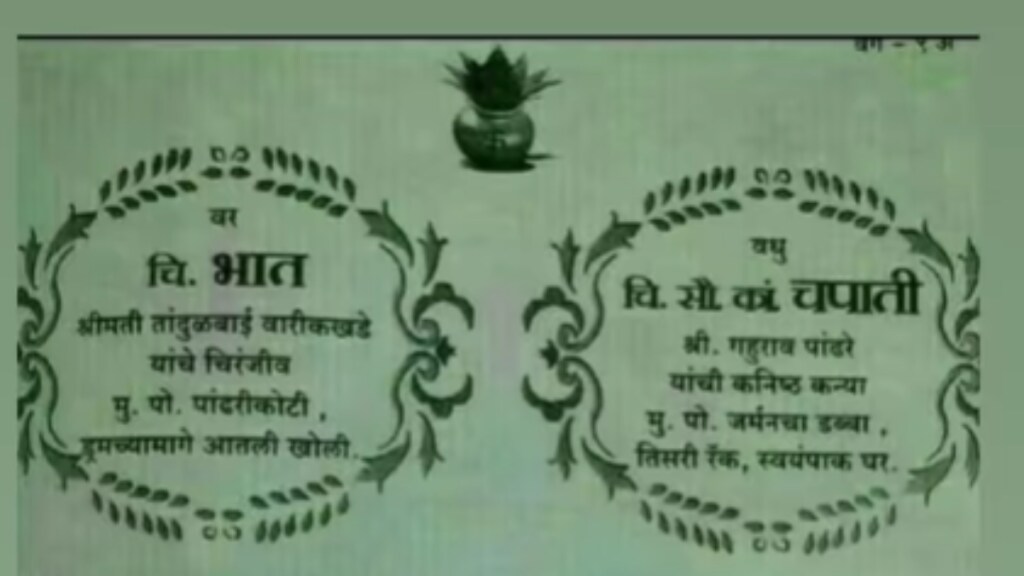 वर
चि. भात
श्रीमती तांदुळबाई वारीकखडे
यांचे चिरंजीव
मु. पो. पांढरीकोटी ,
ड्रमच्यामागे आतली खोली.
वधु
चि. सौ. कां. चपाती
श्री. गहुराव पांढरे
यांची कनिष्ठ कन्या
मु. पो. जर्मनचा डब्बा ,
तिसरी रॅक, स्वयंपाक घर.